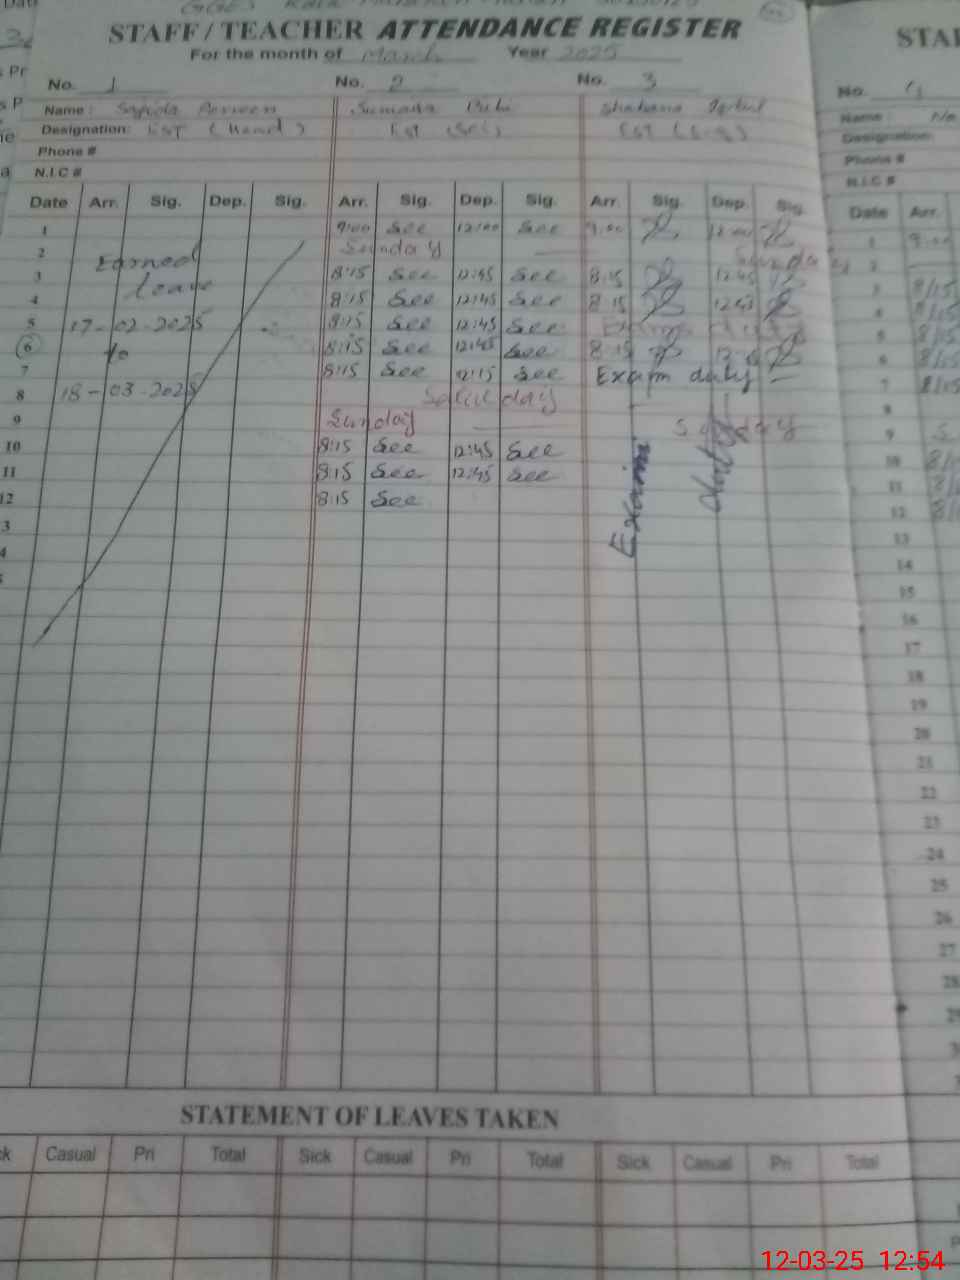 STAFF / TEACHER ATTENDANCE REGISTER
For the month of March Year 2025
No. 1 No. 2 No. 3
Name: Sajida Parveen Sumaira Bibi Shabana
Designation: EST EST EST
Phone #
N.I.C #
Date Arr. Sig. Dep. Sig. Arr. Sig. Dep. Sig. Arr. Sig. Dep. Sig.
1 9:00 See 12:00 See 9:00 12:00
2 Earned Sunday Sunday
3 leave 8:15 See 12:45 See 8:15 12:45
4 8:15 See 12:45 See 8:15 12:45
5 17-02-2025 8:15 See 12:45 See
6 to 8:15 See 12:45 See 8:15
7 8:15 See 12:15 See Exam duty
8 18-03-2025 day
9 Sunday Sunday
10 8:15 See 12:45 See
11 8:15 See 12:45 See
12 8:15 See
Exam duty
STATEMENT OF LEAVES TAKEN
Casual Pri Total Sick Casual Pri Total Sick Casual Pri Total
No. 4
Name:
Designation:
Phone #
N.I.C #
Date Arr.
1 9:00
2
3 8:15
4 8:15
5 8:15
6 8:15
7 8:15
8
9
10
11
12
13
14
15
16
17
18
19
20
21
22
23
24
25
26
27
28
29
12-03-25 12:54